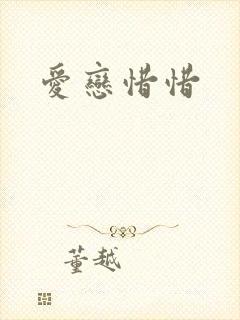 愛戀惜惜
董越